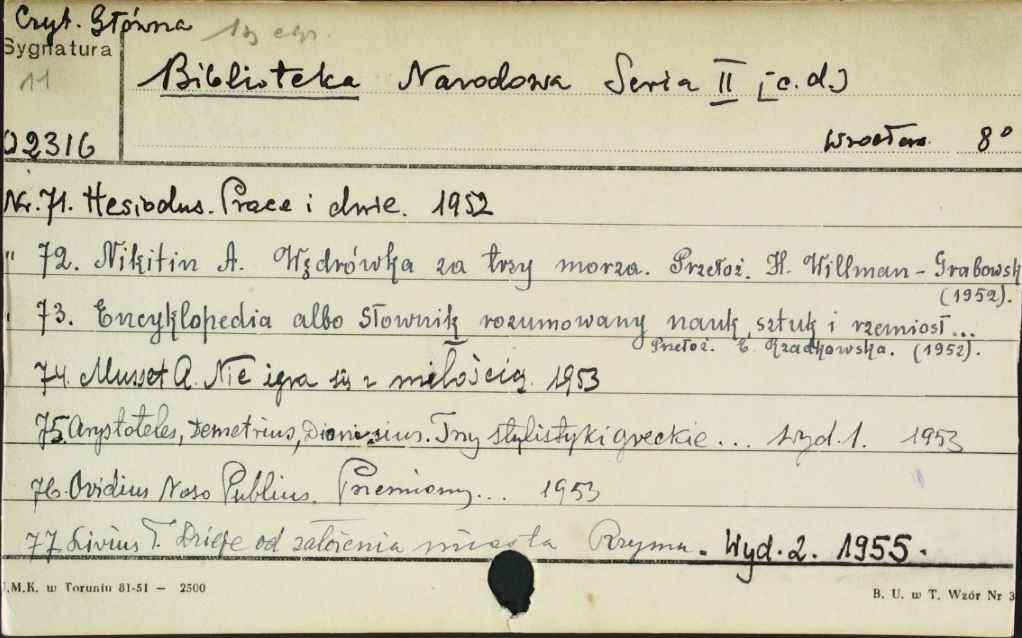 Czyt. Główna
Sygnatura
11
02316
Biblioteka Narodowa Seria II [c.d.]
Wrocław. 8°
Nr. 71. Hesiodus. Prace i dnie. 1952
" 72. Nikitin A. Wędrówka za trzy morza. Przełoż. H. Willman-Grabowsk
(1952).
" 73. Encyklopedia albo Słownik rozumowany nauk, sztuk i rzemiosł...
Przełoż. E. Rzadkowska. (1952).
74. Musset A. Nie igra się z miłością. 1953
75. Arystoteles, Demetrius, Dionisius. Trzy stylistyki greckie... Wyd. 1. 1953
76. Ovidius Naso Publius. Przemiany... 1953
77. Livius T. Dzieje od założenia miasta Rzymu. Wyd. 2. 1955.
U.M.K. w Toruniu 81-51 — 2500
B. U. w T. Wzór Nr 3